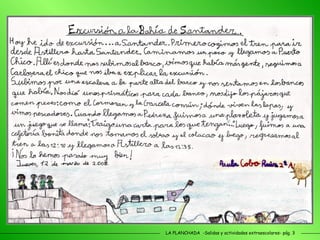 Excursión a la Bahía de Santander.
Hoy he ido de excursión....a Santander. Primero cogimos el tren para ir
desde Astillero hasta Santander. Caminamos un poco y llegamos a Puerto
Chico. Allí es donde nos subimos al barco, vimos que había más gente, y
el chico que nos iba a explicar la excursión.
Subimos por una escalera a la parte alta del barco y nos sentamos en los bancos
que había. Nos dio unos prismáticos para cada banco, nos dijo los pájaros que
comen peces como el Cormorán y la Garceta común; dónde viven las lapas, y
vimos pescadores. Cuando llegamos a Pedreña fuimos a una plazoleta y jugamos a
un juego que se llama: Traigo una carta para los que tengan... Luego, fuimos a una
cafetería bonita donde nos tomamos el sobao y el colacao y luego, regresamos al
tren a las 12:10 y llegamos a Astillero a las 12:35.
¡Nos lo hemos pasado muy bien!
Jueves, 12 de marzo de 2008
Paula Cobo Ruiz 2º A
LA PLANCHADA -Salidas y actividades extraescolares- pág. 3